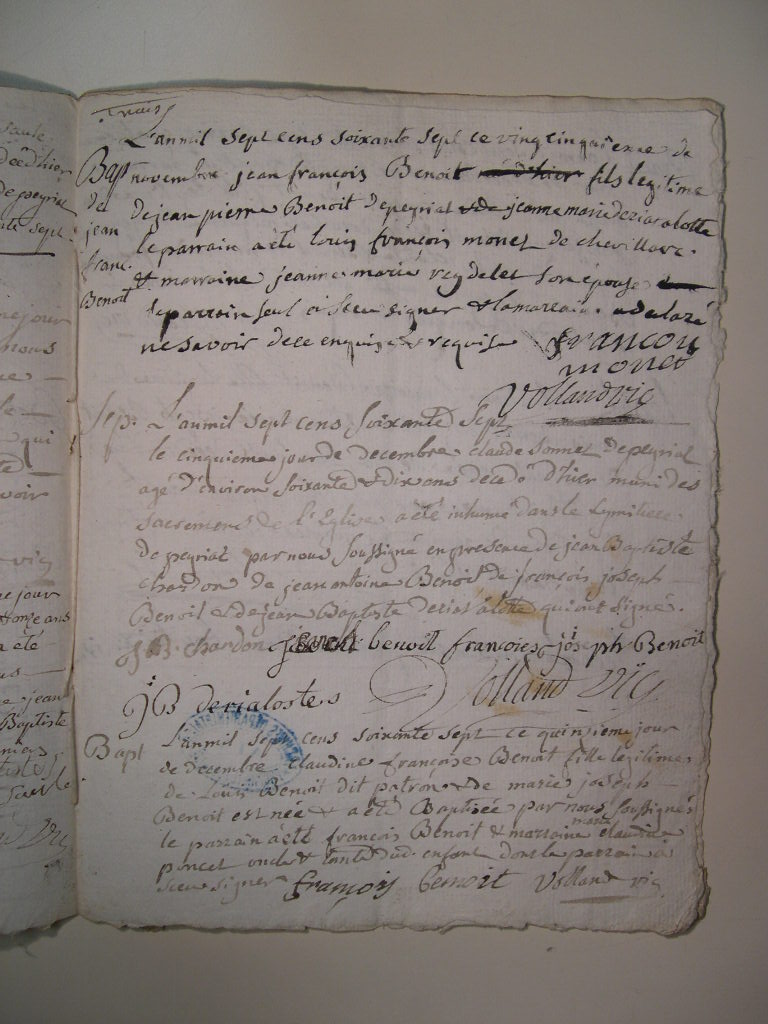 L'anmil sept cens soixante sept ce vingt cinquieme de
Bapt novembre jean françois Benoit fils legitime
de de jean pierre Benoit de peyriat & de jeanne marie derias alotte
jean le parrain a été louis françois monet de chevillare
franc. & marraine jeanne marie reydelet son épouse
Benoit le parrain seul a sceu signer & la marraine a declaré
ne savoir de ce enquise & requise françou
monet
Volland vic
Sep. L'anmil sept cens soixante sept
le cinquieme jour de decembre claude sonnet de peyriat
agé d'environ soixante & dix ans decedé d'hier muni des
sacremens de l'Eglise a été inhumé dans le Cymitiere
de peyriat par nous soussigné en presence de jean Baptiste
chardon de jean antoine Benoit de françois joseph
Benoit & de jean Baptiste derias alotte qui ont signé.
J B chardon benoit françois joseph Benoit
J B derialosters Volland Vic
Bapt L'anmil sept cens soixante sept ce quinsieme jour
de Decembre claudine françoise Benoit fille legitime
de Louis Benoit dit patron & de marie joseph
Benoit est née & a été Baptisée par nous soussignés
le parrain a été françois Benoit & marraine marie claudine
poncet oncle & tante dud. enfant dont le parrain a
sceu signer françois Benoit Volland vic